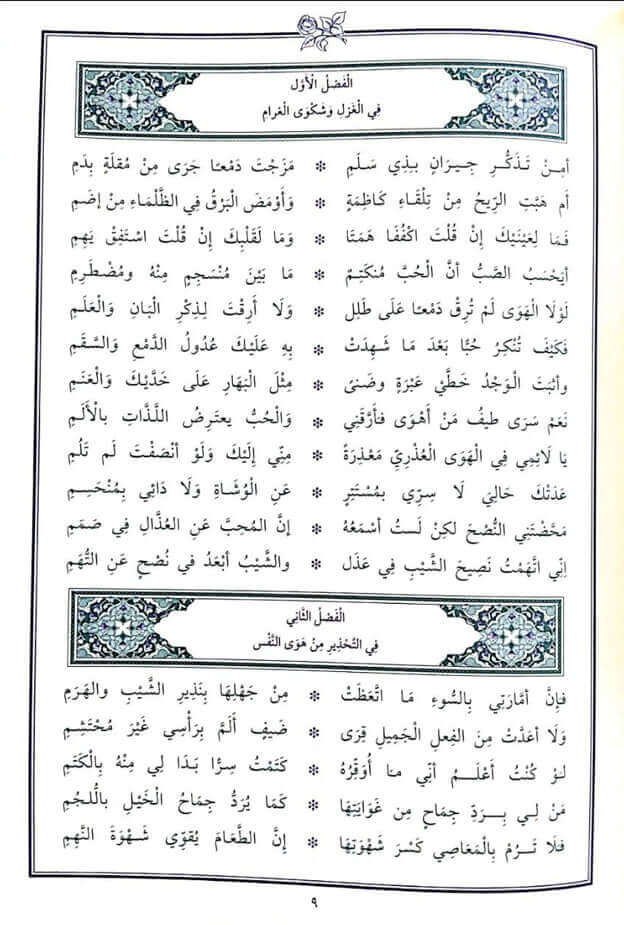 الْفَصْلُ الْأَوَّل
فِي الْغَزَلِ وَشَكْوَى الْغَرَامِ
أمِنْ تَذَكُّرِ جِيرَانٍ بِذِي سَلَمِ * مَزَجْتَ دَمْعًا جَرَى مِنْ مُقْلَةٍ بِدَمِ
أم هَبَّتِ الرِّيحُ مِنْ تِلْقَاءِ كَاظِمَةٍ * وَأَوْمَضَ الْبَرْقُ فِي الظَّلْمَاءِ مِنْ إضَمِ
فَمَا لِعَيْنَيْكَ إنْ قُلْتَ اكْفُفَا هَمَتَا * وَمَا لِقَلْبِكَ إنْ قُلْتَ اسْتَفِقْ يَهِمِ
أيَحْسَبُ الصَّبُّ أنَّ الْحُبَّ مُنكَتِمٌ * مَا بَيْنَ مُنْسَجِمٍ مِنْهُ ومُضْطَرِمِ
لَوْلَا الْهَوَى لَمْ تُرِقْ دَمْعًا عَلَى طَلَلِ * وَلَا أَرِقْتَ لِذِكْرِ الْبَانِ وَالْعَلَمِ
فَكَيْفَ تُنْكِرُ حُبًّا بَعْدَ مَا شَهِدَتْ * بِهِ عَلَيْكَ عُدُولُ الدَّمْعِ وَالسَّقَمِ
وأثبَتَ الْوَجْدُ خَطَّيْ عَبْرَةٍ وضَنىً * مِثْلَ الْبَهَارِ عَلَى خَدَّيْكَ وَالْعَنَمِ
نَعَمْ سَرَى طيفُ مَنْ أَهْوَى فأَرَّقَنِي * وَالْحُبُّ يعتَرِضُ اللَّذَّاتِ بالْأَلَمِ
يَا لَائِمِي فِي الْهَوَى الْعُذْرِيِّ مَعْذِرَةً * مِنِّي إلَيْكَ وَلَوْ أنْصَفْتَ لَم تَلُمِ
عَدَتْكَ حَالِيَ لَا سِرِّي بِمُسْتَتِرٍ * عَنِ الْوُشَاةِ وَلَا دَائِي بِمُنْحَسِمِ
مَحَّضْتَنِي النُّصْحَ لكِنْ لَستُ أسْمَعُهُ * إنَّ المُحِبَّ عَنِ العُذَّالِ فِي صَمَمِ
إنِّي اتَّهَمْتُ نَصِيحَ الشَّيْبِ فِي عَذَل * والشَّيْبُ أبْعَدُ في نُصْحٍ عَنِ التُّهَمِ
الْفَصْلُ الثَّانِي
فِي التَّحْذِيرِ مِنْ هَوَى النَّفْس
فإنَّ أمَّارَتِي بِالسُّوءِ مَا اتَّعَظَتْ * مِنْ جَهْلِهَا بِنَذِيرِ الشَّيْبِ والهَرَمِ
وَلَا أعَدَّتْ مِنَ الفِعلِ الْجَمِيلِ قِرَى * ضَيفٍ أَلَمَّ بِرَأْسِي غَيْرَ مُحْتَشِمِ
لَوْ كُنْتُ أَعْلَمُ أنِّي مَا أُوَقِّرُهُ * كَتَمْتُ سِرًّا بَدَا لِي مِنْهُ بِالْكَتَمِ
مَنْ لِي بِرَدِّ جِمَاحٍ مِن غَوَايَتِهَا * كَمَا يُرَدُّ جِمَاحُ الْخَيْلِ بِاللُّجُمِ
فلَا تَرُمْ بِالْمَعَاصِي كَسْرَ شَهْوَتِهَا * إنَّ الطَّعَامَ يُقوِّي شَهْوَةَ النَّهِمِ
٩